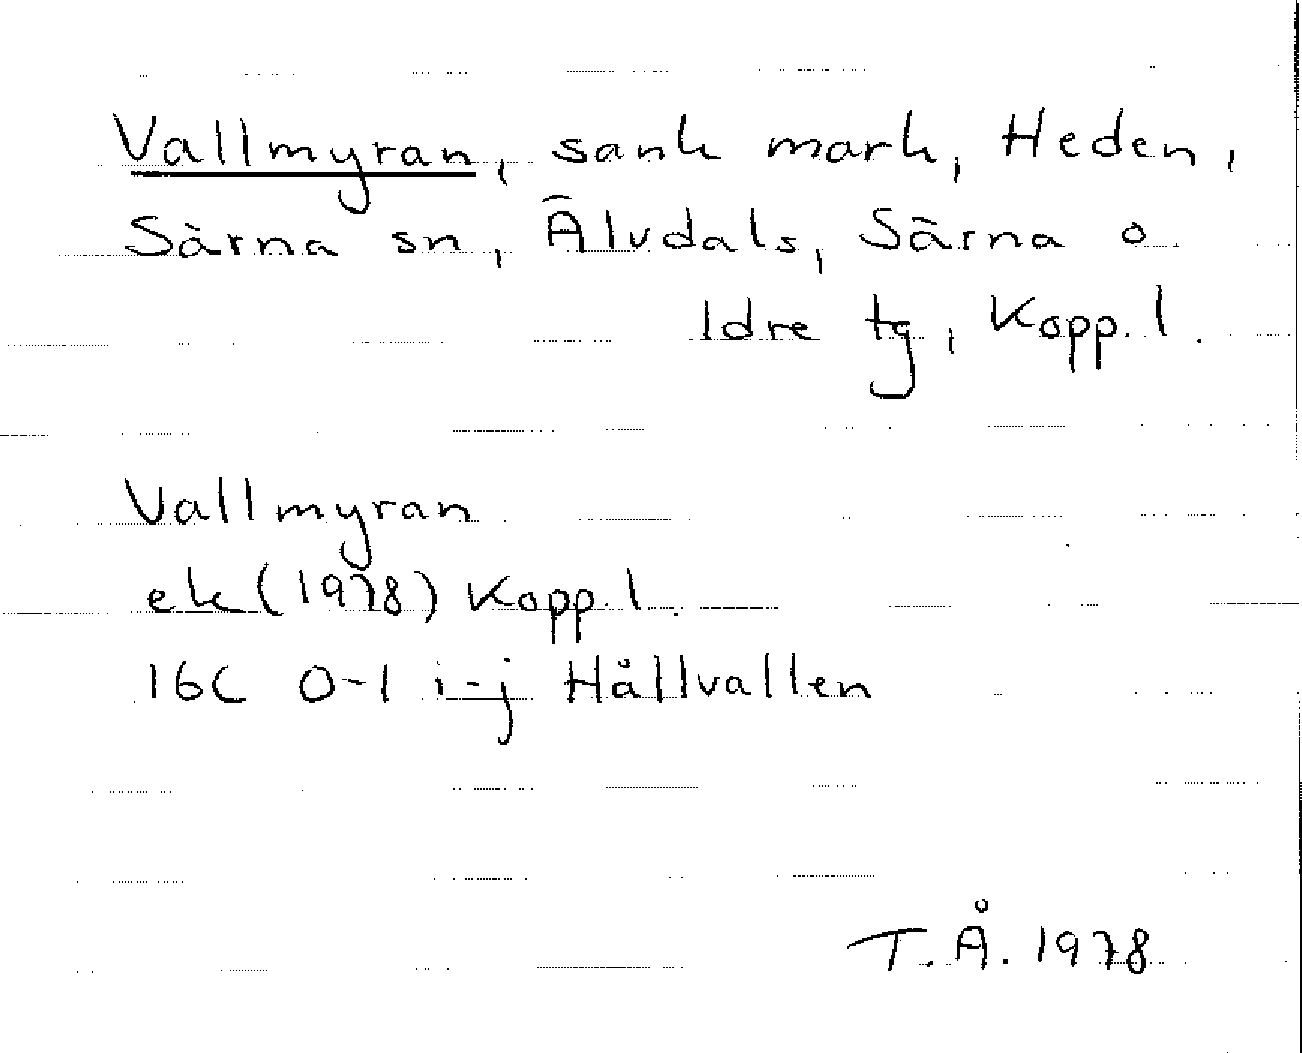 Vallmyran, sank mark, Heden,
Särna sn, Älvdals, Särna o
Idre tg, Kopp. l.
Vallmyran
ek (1978) Kopp. l.
16C 0-1 i-j Hållvallen
T. Å. 1978